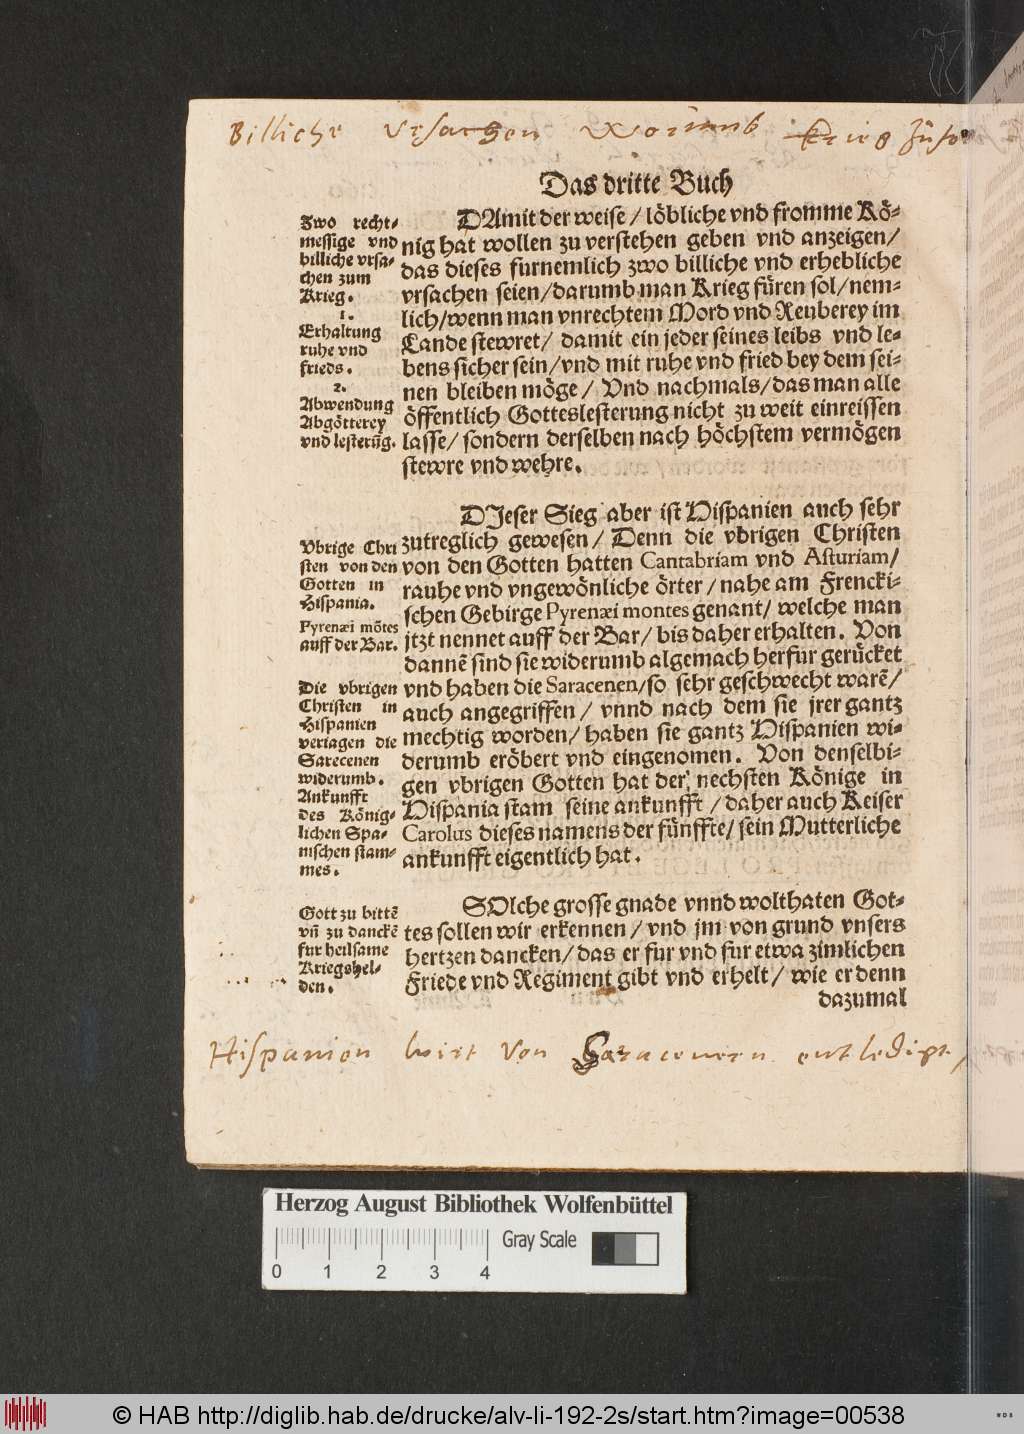 Billiche Vrsachen Worumb Krieg
Das dritte Buch
Zwo recht-
messige vnd
billiche vrsa-
chen zum
Krieg.
1.
Erhaltung
ruhe vnd
frieds.
2.
Abwendung
Abgötterey
vnd lesterũg.
DAmit der weise / löbliche vnd fromme Kö-
nig hat wollen zu verstehen geben vnd anzeigen /
das dieses furnemlich zwo billiche vnd erhebliche
vrsachen seien / darumb man Krieg füren sol / nem-
lich / wenn man vnrechtem Mord vnd Reuberey im
Lande stewret / damit ein jeder seines leibs vnd le-
bens sicher sein / vnd mit ruhe vnd fried bey dem sei-
nen bleiben möge / Vnd nachmals / das man alle
öffentlich Gotteslesterung nicht zu weit einreissen
lasse / sondern derselben nach höchstem vermögen
stewre vnd wehre.
Vbrige Chri
sten von den
Gotten in
Hispania.
Pyrenæi mõtes
auff der Bar.
Die vbrigen
Christen in
Hispanien
veriagen die
Sarecenen
widerumb.
Ankunfft
des König-
lichen Spa-
nischen stam-
mes.
DJeser Sieg aber ist Hispanien auch sehr
zutreglich gewesen / Denn die vbrigen Christen
von den Gotten hatten Cantabriam vnd Asturiam /
rauhe vnd vngewönliche örter / nahe am Frencki-
schen Gebirge Pyrenæi montes genant / welche man
jtzt nennet auff der Bar / bis daher erhalten. Von
dannẽ sind sie widerumb algemach herfur gerücket
vnd haben die Saracenen / so sehr geschwecht warẽ /
auch angegriffen / vnnd nach dem sie jrer gantz
mechtig worden / haben sie gantz Hispanien wi-
derumb eröbert vnd eingenomen. Von denselbi-
gen vbrigen Gotten hat der nechsten Könige in
Hispania stam seine ankunfft / daher auch Keiser
Carolus dieses namens der fünffte / sein Mutterliche
ankunfft eigentlich hat.
Gott zu bittẽ
vñ zu danckẽ
fur heilsame
Kriegshel-
den.
SOlche grosse gnade vnnd wolthaten Got-
tes sollen wir erkennen / vnd jm von grund vnsers
hertzen dancken / das er fur vnd fur etwa zimlichen
Friede vnd Regiment gibt vnd erhelt / wie er denn
dazumal
Hispanien wirt von Saracenern entledigt,
Herzog August Bibliothek Wolfenbüttel
Gray Scale
0 1 2 3 4
© HAB http://diglib.hab.de/drucke/alv-li-192-2s/start.htm?image=00538